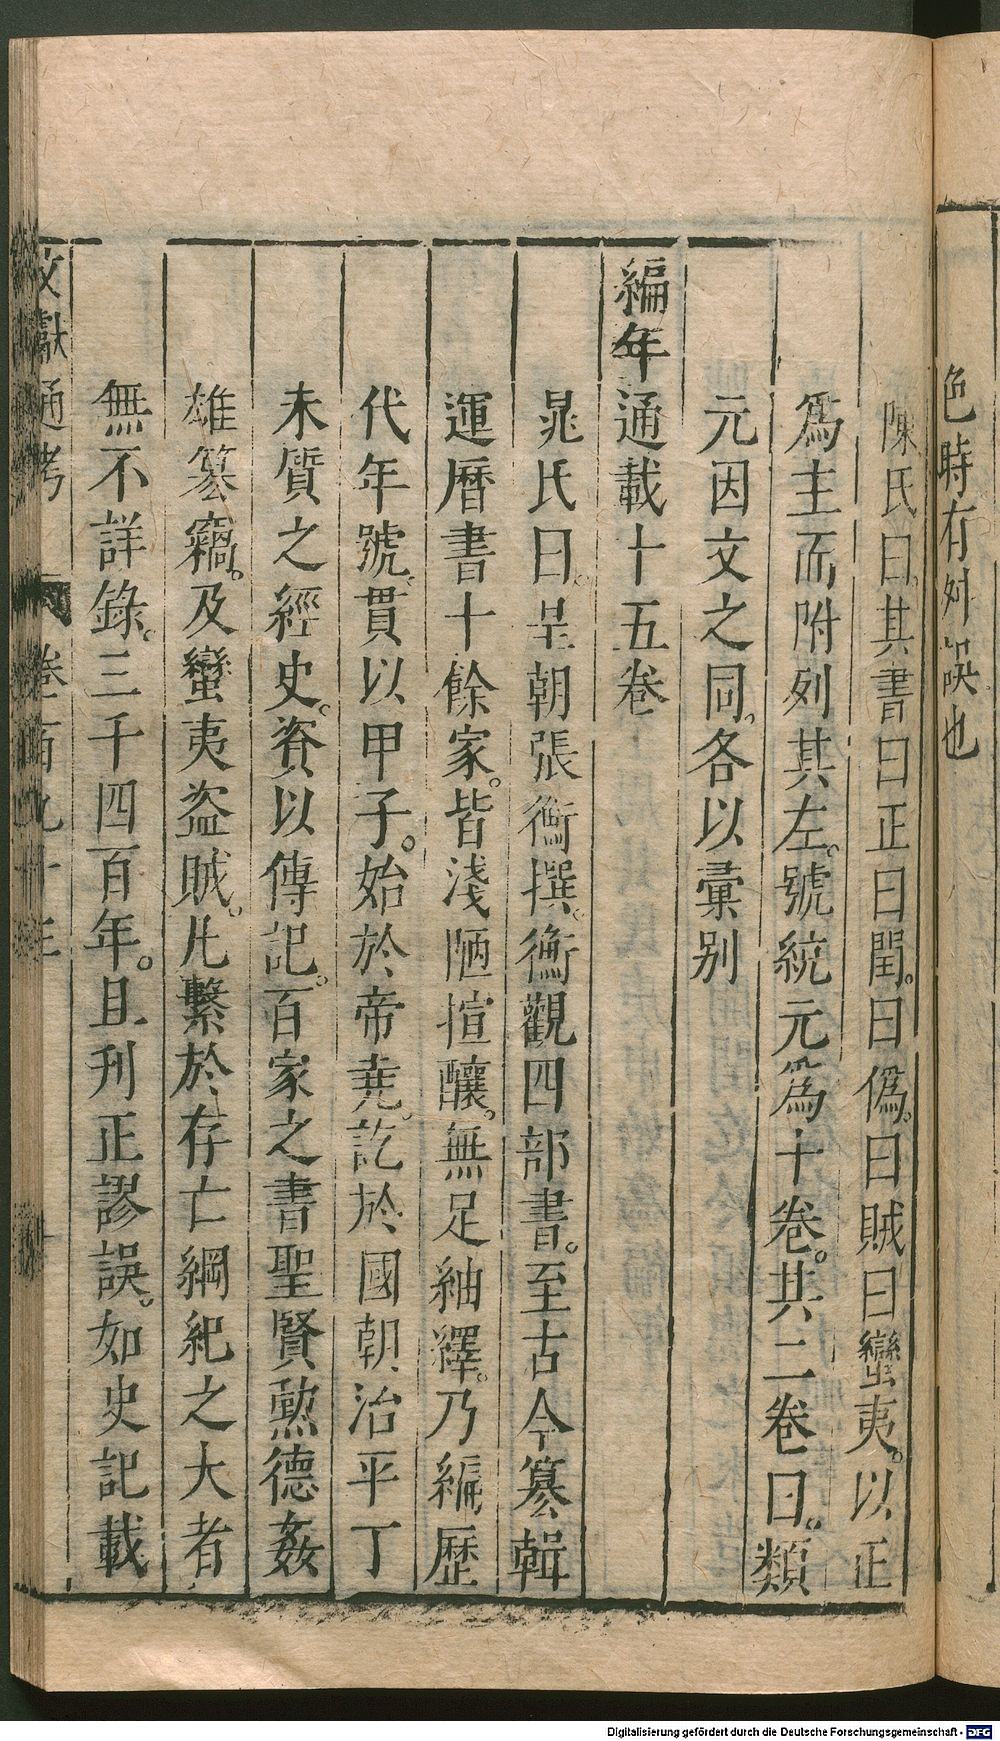 色時有舛誤也
陳氏曰其書曰正曰閏。曰僞。曰賊曰蠻夷。以正
爲主而附列其左。號統元爲十卷。共二卷曰。類
元因文之同。各以彙别
編年通載十五卷
晁氏曰。皇朝張衡撰。衡觀四部書。至古今纂輯
運曆書十餘家。皆淺陋揎釀。無足紬繹。乃編歷
代年號。貫以甲子。始於帝堯。訖於國朝治平丁
未質之經史。資以傳記。百家之書聖賢勲德姦
雄篡竊。及蠻夷盜賊。凡繫於存亡綱紀之大者
無不詳錄。三千四百年。且刋正謬誤。如史記載
文獻通考 卷百九十三
Digitalisierung gefördert durch die Deutsche Forschungsgemeinschaft - DFG